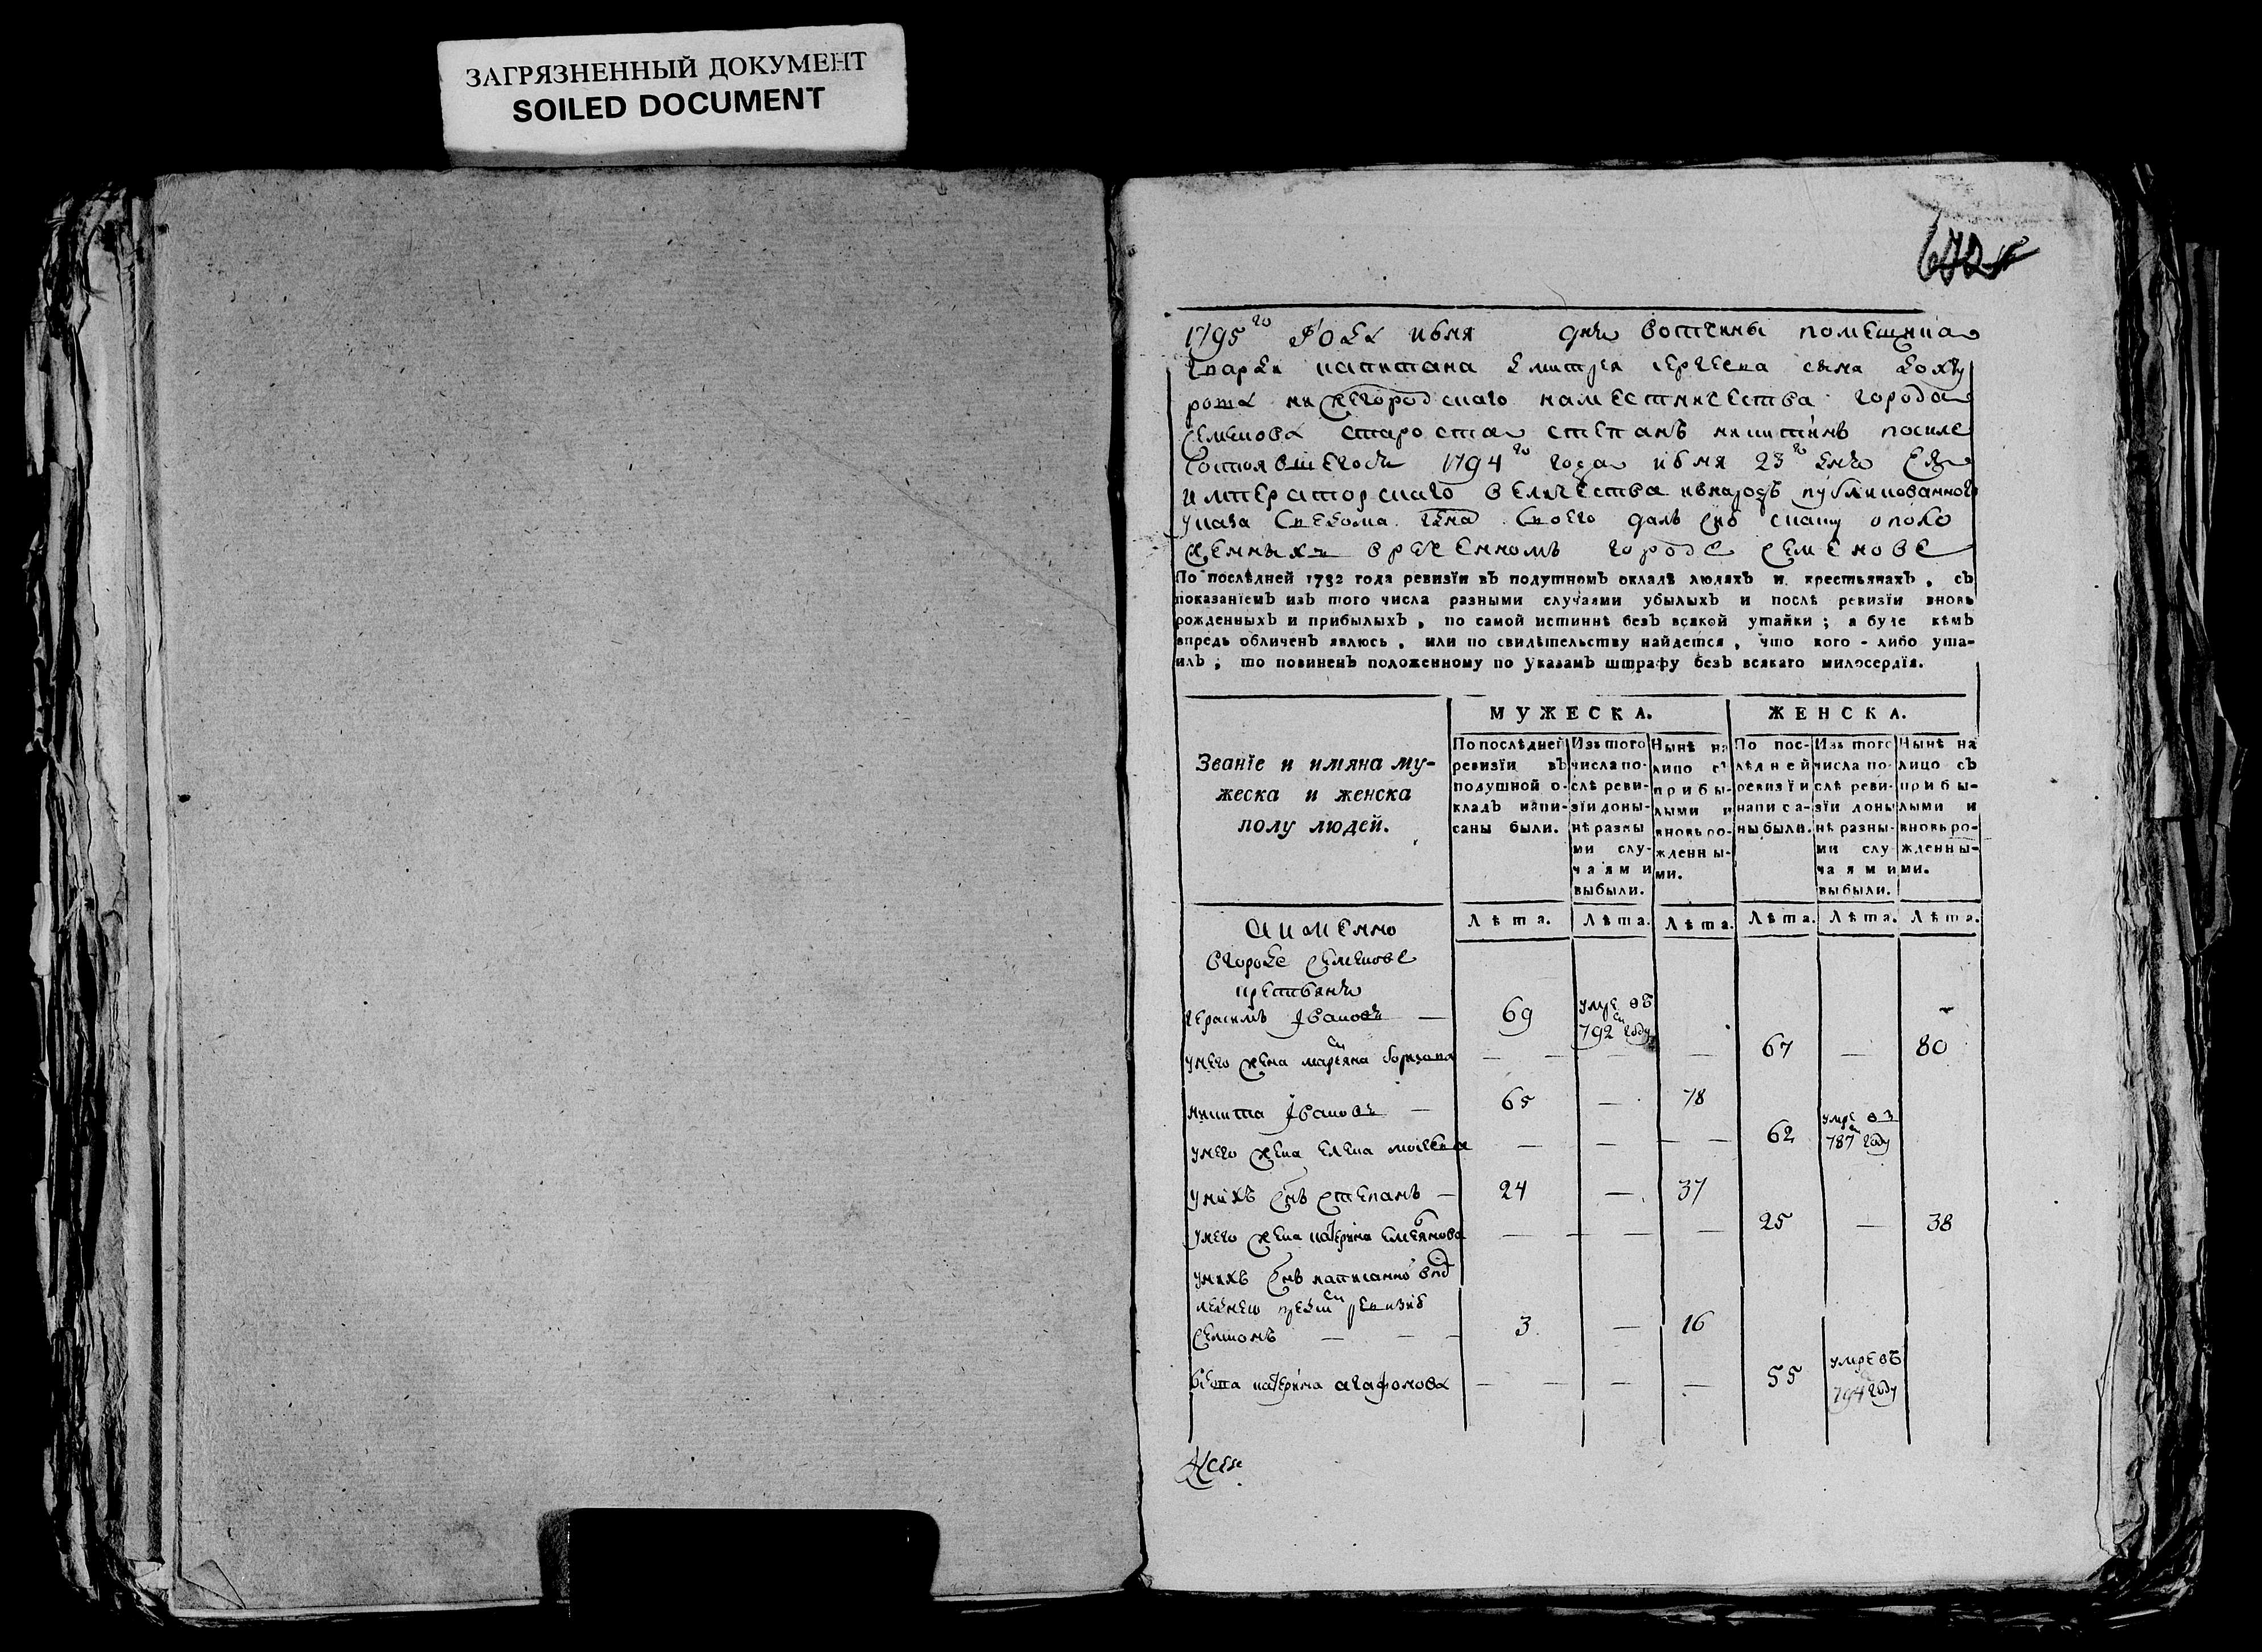 ЗАГРЯЗНЕННЫЙ ДОКУМЕНТ
SOILED DOCUMENT
1795го года июня дня вотчины помещика
гвардии капитана дмитрея сергеева сына дохту
рова нижегородскаго наместничества города
семенова староста степанъ никитинъ после
состоявшегося 1794го года июня 23го дня ея
императорскаго величества и в народъ публикованного
указа далъ сию скаску о поло
женныхъ в реченномъ городе семенове
По послѣдней 1782 года ревизїи въ подушномъ окладѣ людяхъ и крестьянахъ, съ
показанїемъ изъ того числа разными случаями убылыхъ и послѣ ревизїи вновь
рожденныхъ и прибылыхъ, по самой истиннѣ безъ всякой утайки; а буде кѣмъ
впредь обличенъ явлюсь, или по свидѣтельству найдется, что кого-либо ута-
илъ; то повиненъ положенному по указамъ штрафу безъ всякаго милосердїя.
МУЖЕСКА. ЖЕНСКА.
Званїе и имяна му-
жеска и женска
полу людей.
По послѣдней
ревизїи въ
подушной о-
кладъ напи-
саны были.
Изъ того
числа по-
слѣ реви-
зїи доны-
нѣ разны
ми слу-
чаями
выбыли.
Нынѣ на
лицо съ
прибы-
лыми и
вновь ро-
жденны-
ми.
По пос-
лѣдней
ревизїи
написа-
ны были.
Изъ того
числа по-
слѣ реви-
зїи доны
нѣ разны-
ми слу-
чаями
выбыли.
Нынѣ на
лицо съ
прибы-
лыми и
вновь ро-
жденны-
ми.
Лѣта. Лѣта. Лѣта. Лѣта. Лѣта. Лѣта.
А именно
в городе семенове
крестьянъ
герасимъ Ивановъ — 69 умре въ 792м году
у него жена марьяна борисова — — — — 67 — 80
никита Ивановъ — 65 — 78
у него жена елена — — — — 62 умре въ 787м году
у нихъ снъ степанъ — 24 — 37
у него жена катерина емельянова — — — — 25 — 38
у нихъ снъ написанной в по
следнею пред сим ревизию
семионъ — — — 3 — 16
вдова катерина агафонова — — — — 55 умре въ 794 году